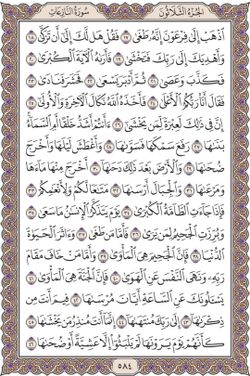 الجزء الثلاثون سورة النازعات
اذْهَبْ إِلَىٰ فِرْعَوْنَ إِنَّهُ طَغَىٰ ١٧ فَقُلْ هَل لَّكَ إِلَىٰ أَن تَزَكَّىٰ ١٨
وَأَهْدِيَكَ إِلَىٰ رَبِّكَ فَتَخْشَىٰ ١٩ فَأَرَاهُ الْآيَةَ الْكُبْرَىٰ ٢٠
فَكَذَّبَ وَعَصَىٰ ٢١ ثُمَّ أَدْبَرَ يَسْعَىٰ ٢٢ فَحَشَرَ فَنَادَىٰ ٢٣
فَقَالَ أَنَا رَبُّكُمُ الْأَعْلَىٰ ٢٤ فَأَخَذَهُ اللَّهُ نَكَالَ الْآخِرَةِ وَالْأُولَىٰ ٢٥
إِنَّ فِي ذَٰلِكَ لَعِبْرَةً لِّمَن يَخْشَىٰ ٢٦ أَأَنتُمْ أَشَدُّ خَلْقًا أَمِ السَّمَاءُ
بَنَاهَا ٢٧ رَفَعَ سَمْكَهَا فَسَوَّاهَا ٢٨ وَأَغْطَشَ لَيْلَهَا وَأَخْرَجَ
ضُحَاهَا ٢٩ وَالْأَرْضَ بَعْدَ ذَٰلِكَ دَحَاهَا ٣٠ أَخْرَجَ مِنْهَا مَاءَهَا
وَمَرْعَاهَا ٣١ وَالْجِبَالَ أَرْسَاهَا ٣٢ مَتَاعًا لَّكُمْ وَلِأَنْعَامِكُمْ ٣٣
فَإِذَا جَاءَتِ الطَّامَّةُ الْكُبْرَىٰ ٣٤ يَوْمَ يَتَذَكَّرُ الْإِنسَانُ مَا سَعَىٰ ٣٥
وَبُرِّزَتِ الْجَحِيمُ لِمَن يَرَىٰ ٣٦ فَأَمَّا مَن طَغَىٰ ٣٧ وَآثَرَ الْحَيَاةَ
الدُّنْيَا ٣٨ فَإِنَّ الْجَحِيمَ هِيَ الْمَأْوَىٰ ٣٩ وَأَمَّا مَنْ خَافَ مَقَامَ
رَبِّهِ وَنَهَى النَّفْسَ عَنِ الْهَوَىٰ ٤٠ فَإِنَّ الْجَنَّةَ هِيَ الْمَأْوَىٰ ٤١
يَسْأَلُونَكَ عَنِ السَّاعَةِ أَيَّانَ مُرْسَاهَا ٤٢ فِيمَ أَنتَ مِن
ذِكْرَاهَا ٤٣ إِلَىٰ رَبِّكَ مُنتَهَاهَا ٤٤ إِنَّمَا أَنتَ مُنذِرُ مَن يَخْشَاهَا ٤٥
كَأَنَّهُمْ يَوْمَ يَرَوْنَهَا لَمْ يَلْبَثُوا إِلَّا عَشِيَّةً أَوْ ضُحَاهَا ٤٦
٥٨٤